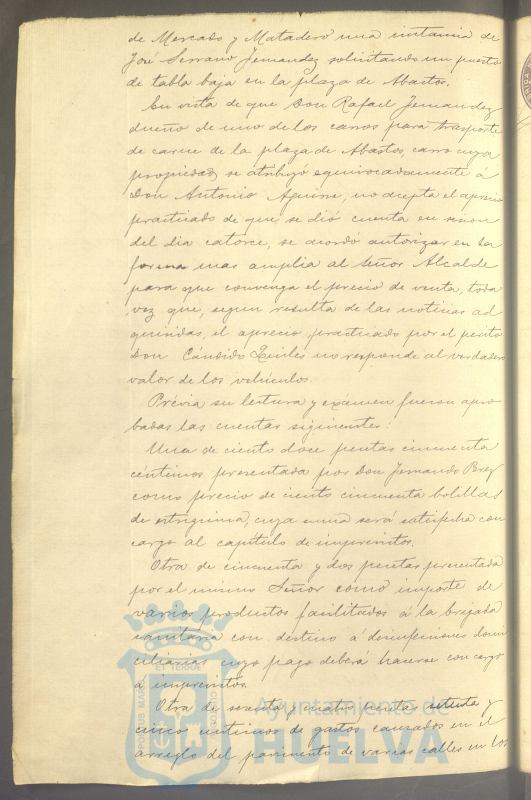 de Mercado y Matadero una instancia de
José Serrano Fernandez solicitando un puesto
de tabla baja en la plaza de Abastos.
En vista de que Don Rafael Fernandez
dueño de uno de los carros para trasporte
de carne de la plaza de Abastos, carro cuya
propiedad se atribuyó equivocadamente á
Don Antonio Aguirre, no acepta el aprecio
practicado de que se dió cuenta en sesion
del dia catorce, se acordó autorizar en la
forma mas amplia al Señor Alcalde
para que convenga el precio de venta, toda
vez que, segun resulta de las noticias ad
quiridas, el aprecio practicado por el perito
Don Cándido no responde al verdadero
valor de los vehículos.
Prévia su lectura y exámen fueron apro
badas las cuentas siguientes:
Una de ciento doce pesetas cincuenta
céntimos presentada por Don Fernando
como precio de ciento cincuenta bolillas
de estrignina, cuya suma será satisfecha con
cargo al capítulo de imprevistos.
Otra de cincuenta y dos pesetas presentada
por el mismo Señor como importe de
varios productos facilitados á la brigada
sanitaria con destino á desinfecciones domi
ciliarias cuyo pago deberá hacerse con cargo
á imprevistos.
Otra de sesenta y cuatro pesetas setenta y
cinco centimos de gastos causados en el
arreglo del pavimento de varias calles en los
PORTUS MARIS ET TERRÆ CUSTODIA
Ayuntamiento de
HUELVA